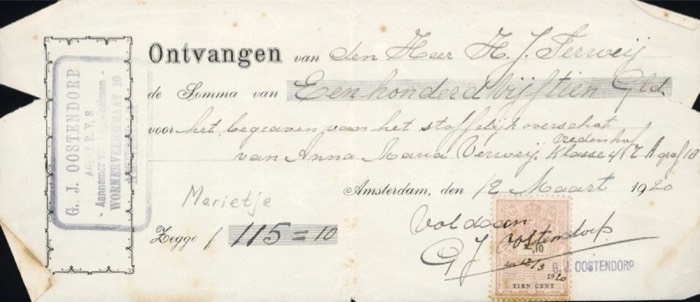 G. J. OOSTENDORP
Ontvangen van den Heer H. J. Terweij
de Somma van Een honderd vijftien Gld
voor het begraven van het stoffelijk overschot
van Anna Maria Verweij Klasse 4 graf 18
Vredenhof
Marietje
Amsterdam, den 12 Maart 1920
Zegge f 115 = 10
Voldaan
G J Oostendorp
12/3
1920
G. J. OOSTENDORP
TIEN CENT